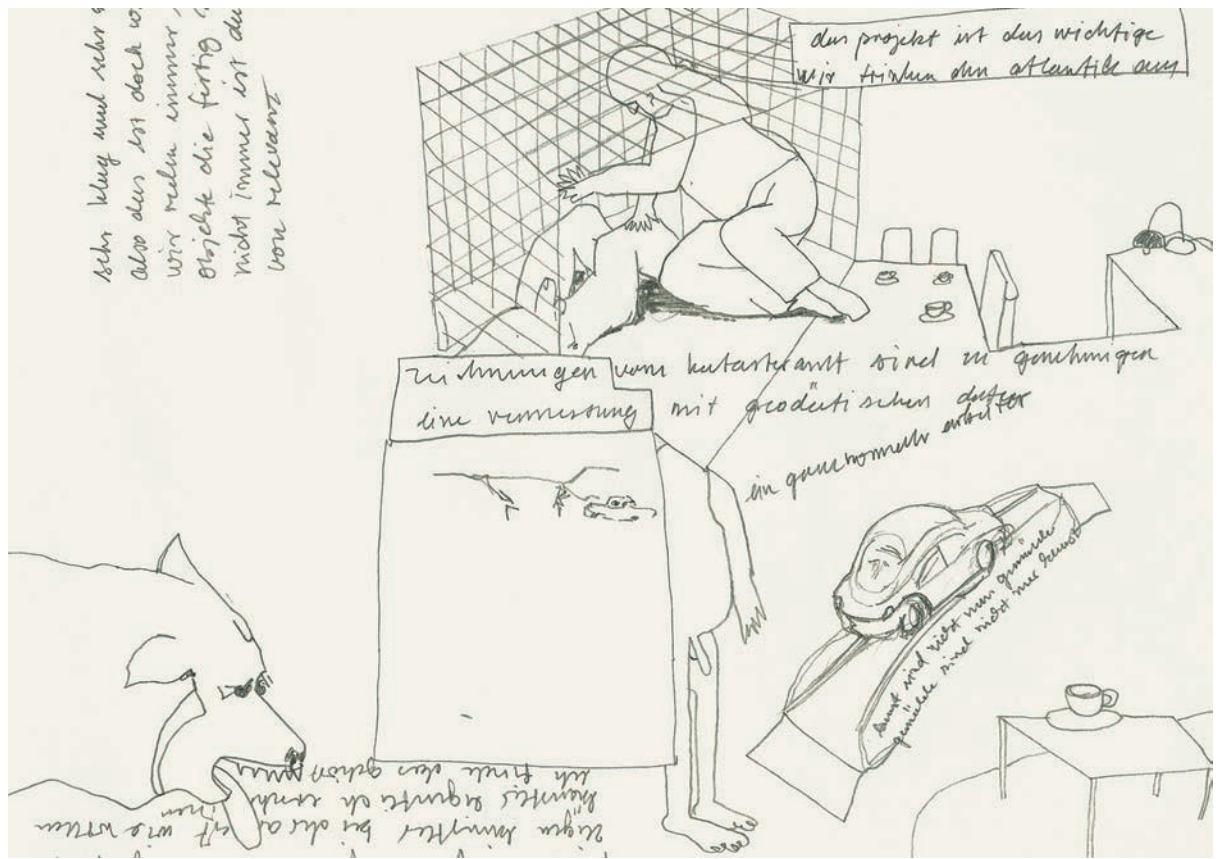 sehr klug und sehr
also das ist doch
wir reden immer
objekte die fertig
nicht immer ist
von relevanz
das projekt ist das wichtige
wir trinken den atlantik aus
zeichnungen vom katasteramt sind zu genehmigen
eine vermessung mit geodätischen daten
ein ganz normaler arbeiter
kunst sind nicht nur gemälde
gemälde sind nicht nur kunst
zeigen künstler bei der arbeit wie
künstler eigentlich
ich finde das schön